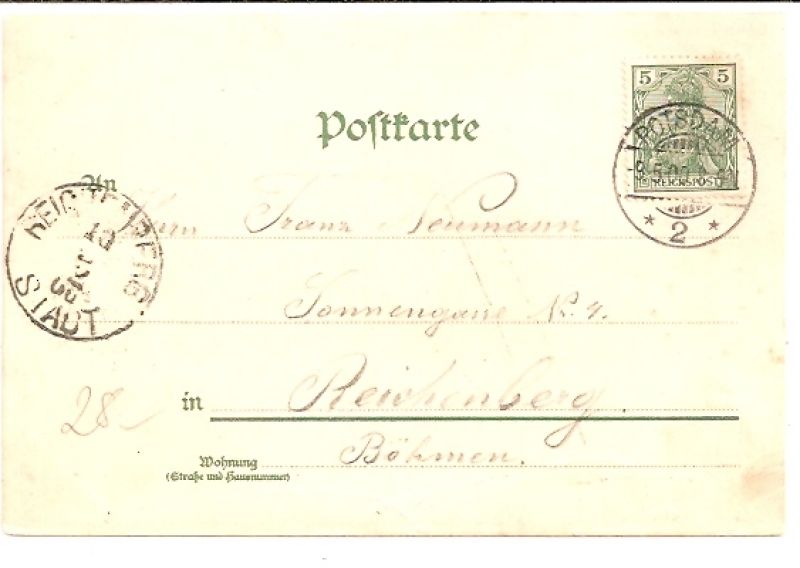 5 5
REICHSPOST
POTSDAM
* 2 *
Postkarte
An
Herrn Franz Neumann
Sonnengasse No. 4.
in Reichenberg.
Böhmen.
Wohnung
(Straße und Hausnummer)
REICHENBERG
STADT
28-